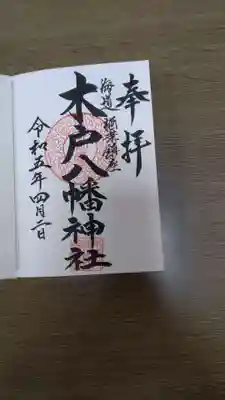 奉拝
海道
木戸八幡神社
令和五年四月二日